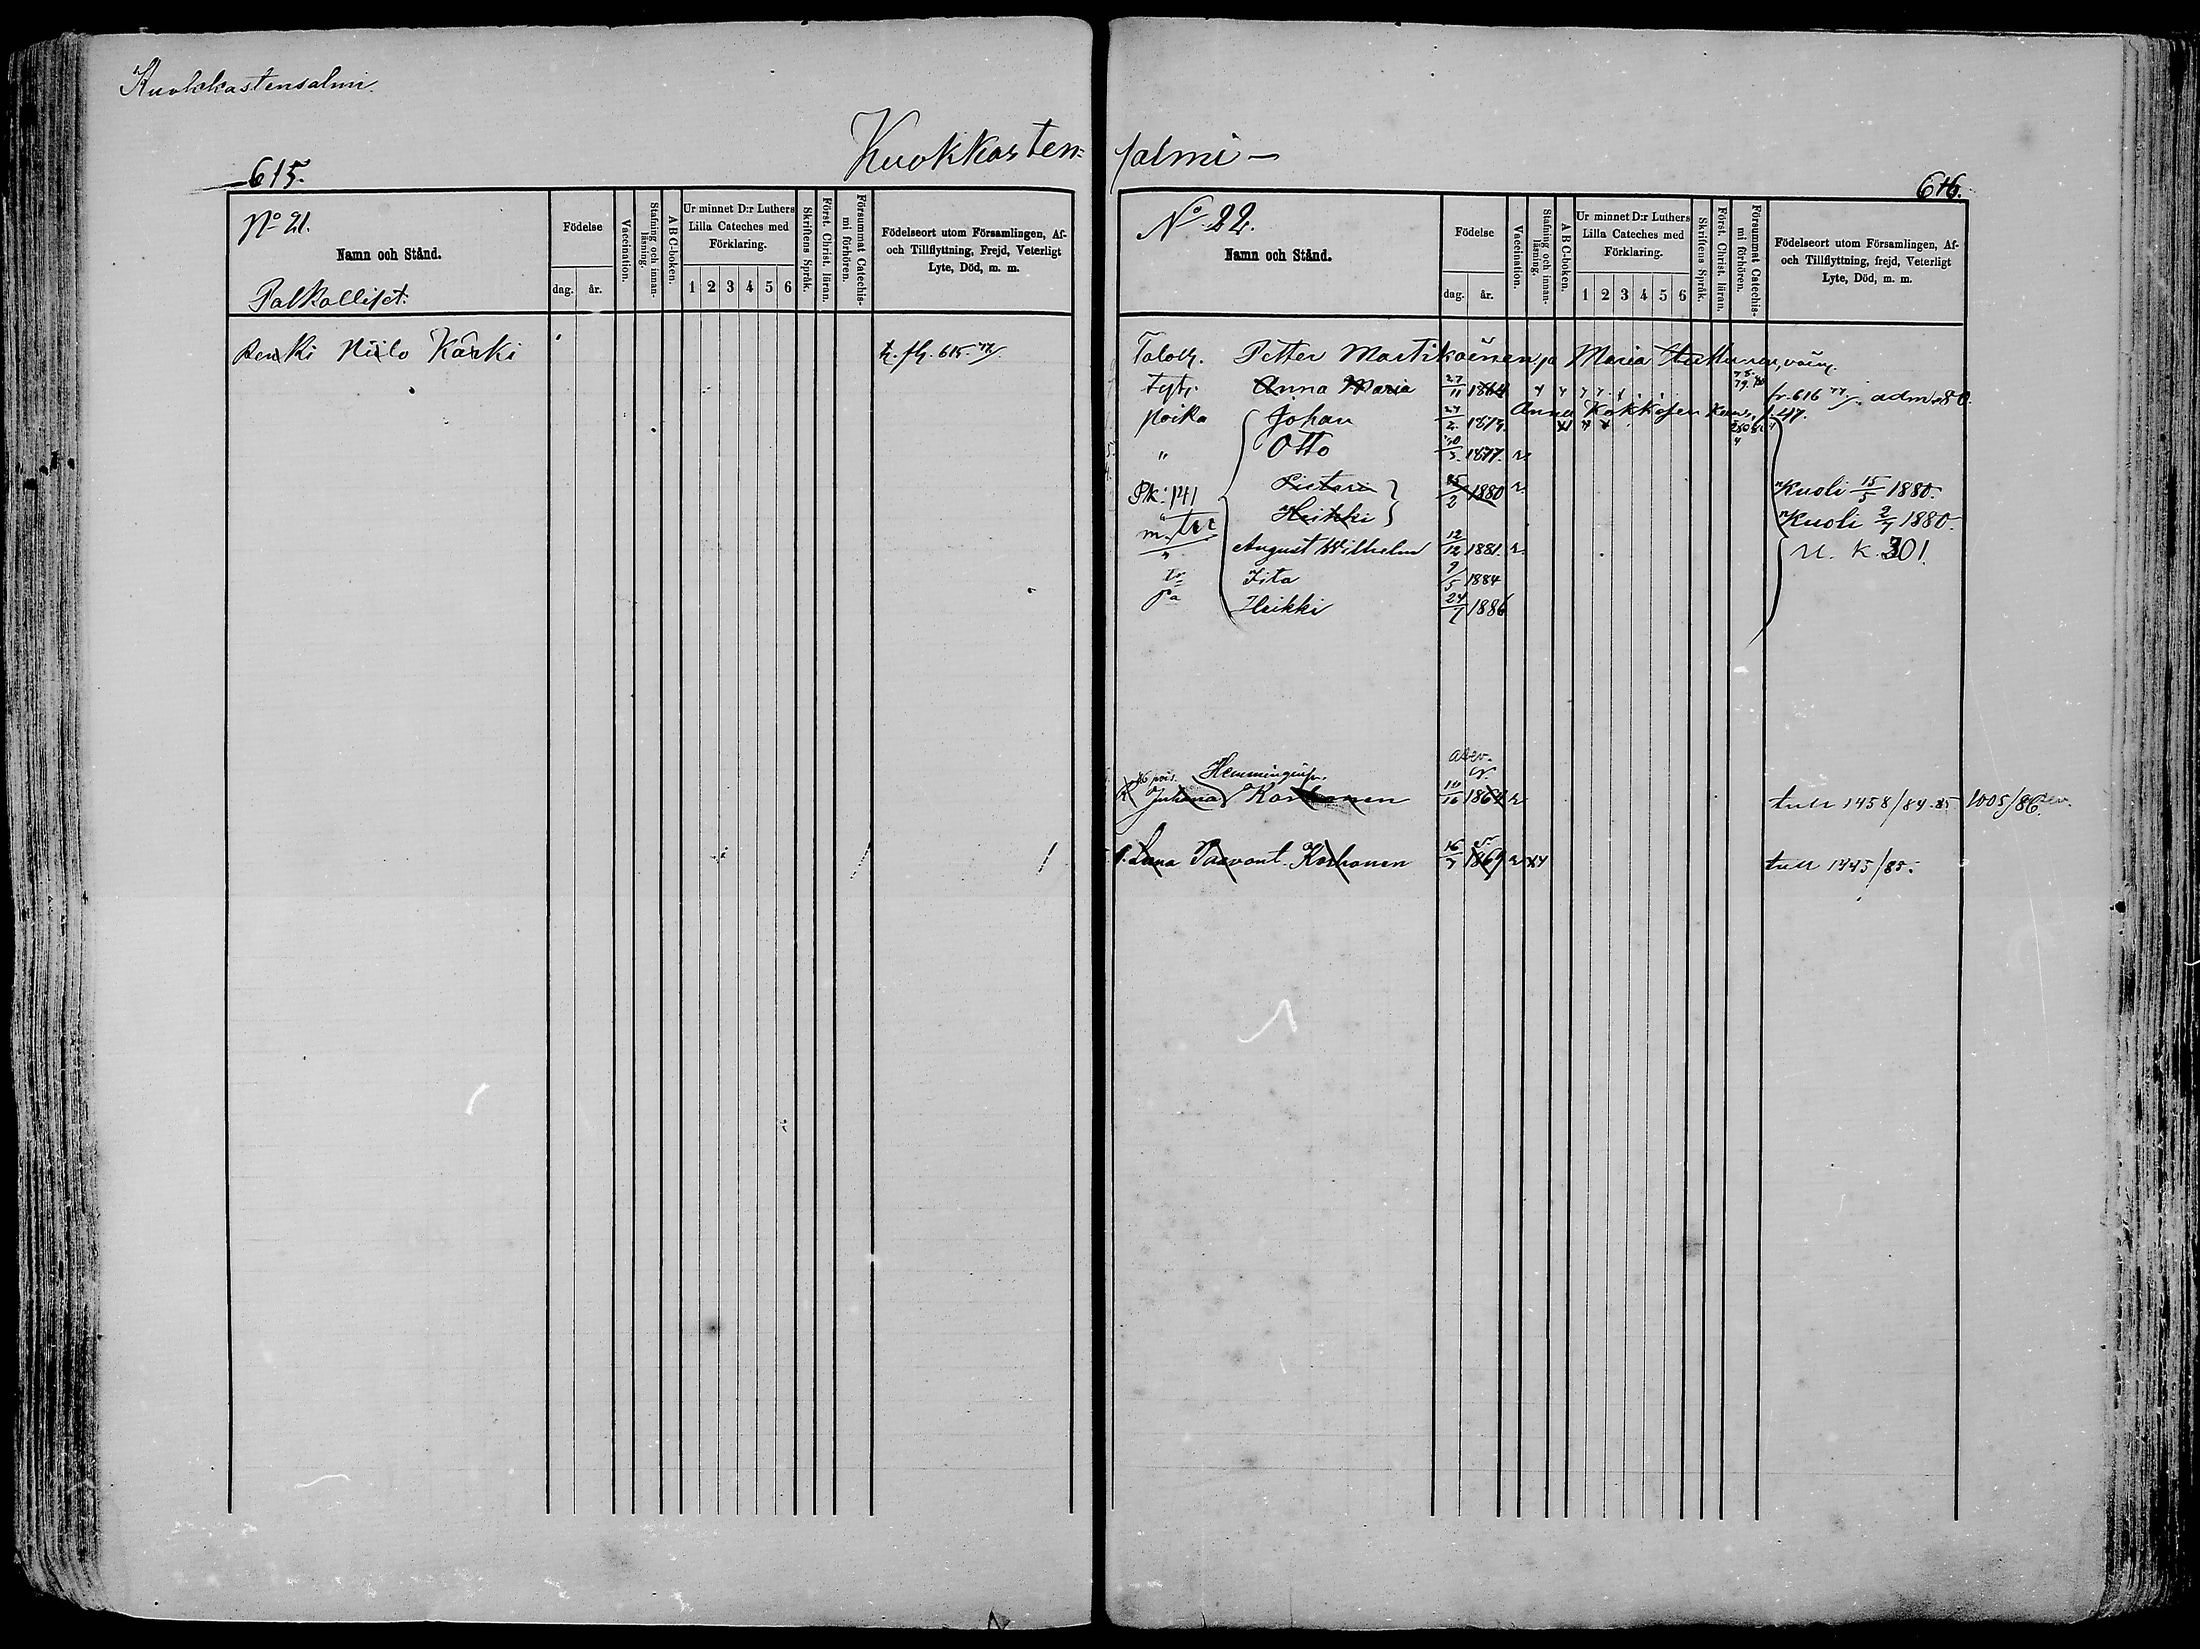 Kuokkastensalmi.
Kuokkasten=
615.
No 21.
Namn och Stånd.
Palkolliset.
Födelse
dag.
år.
Vaccination.
Stafning och innanläsning.
A B C-boken.
Ur minnet D:r Luthers
Lilla Cateches med
Förklaring.
1 2 3 4 5 6
Skriftens Språk.
Först. Christ. läran.
Försummat Catechismi förhören.
Födelseort utom Församlingen, Af-
och Tillflyttning, Frejd, Veterligt
Lyte, Död, m. m.
Renki Niilo Kärki
salmi —
616.
No 22.
Namn och Stånd.
Födelse
dag.
år.
Vaccination.
Stafning och innanläsning.
A B C-boken.
Ur minnet D:r Luthers
Lilla Cateches med
Förklaring.
1 2 3 4 5 6
Skriftens Språk.
Först. Christ. läran.
Försummat Catechismi förhören.
Födelseort utom Församlingen, Af-
och Tillflyttning, frejd, Veterligt
Lyte, Död, m. m.
Petter Martikainen ja Maria
Anna Maria 27/11 1864 fr. 616 77/ adm. 80.
Anna Kokkosen
poika Johan 1875.
" Otto 1877. r.
Pietari 1880 r. Kuoli 15/5 1880.
Heikki Kuoli 2/7 1880.
August Wilhelm 12/12 1881. r. U. K. 301.
Fita 9/5 1884
Heikki 24/7 1886
Juhana Korhonen 10/16 1864 r. tull 1458/84.85 1005/86.
Korhonen 16/7 1867 r tull 1445/85.